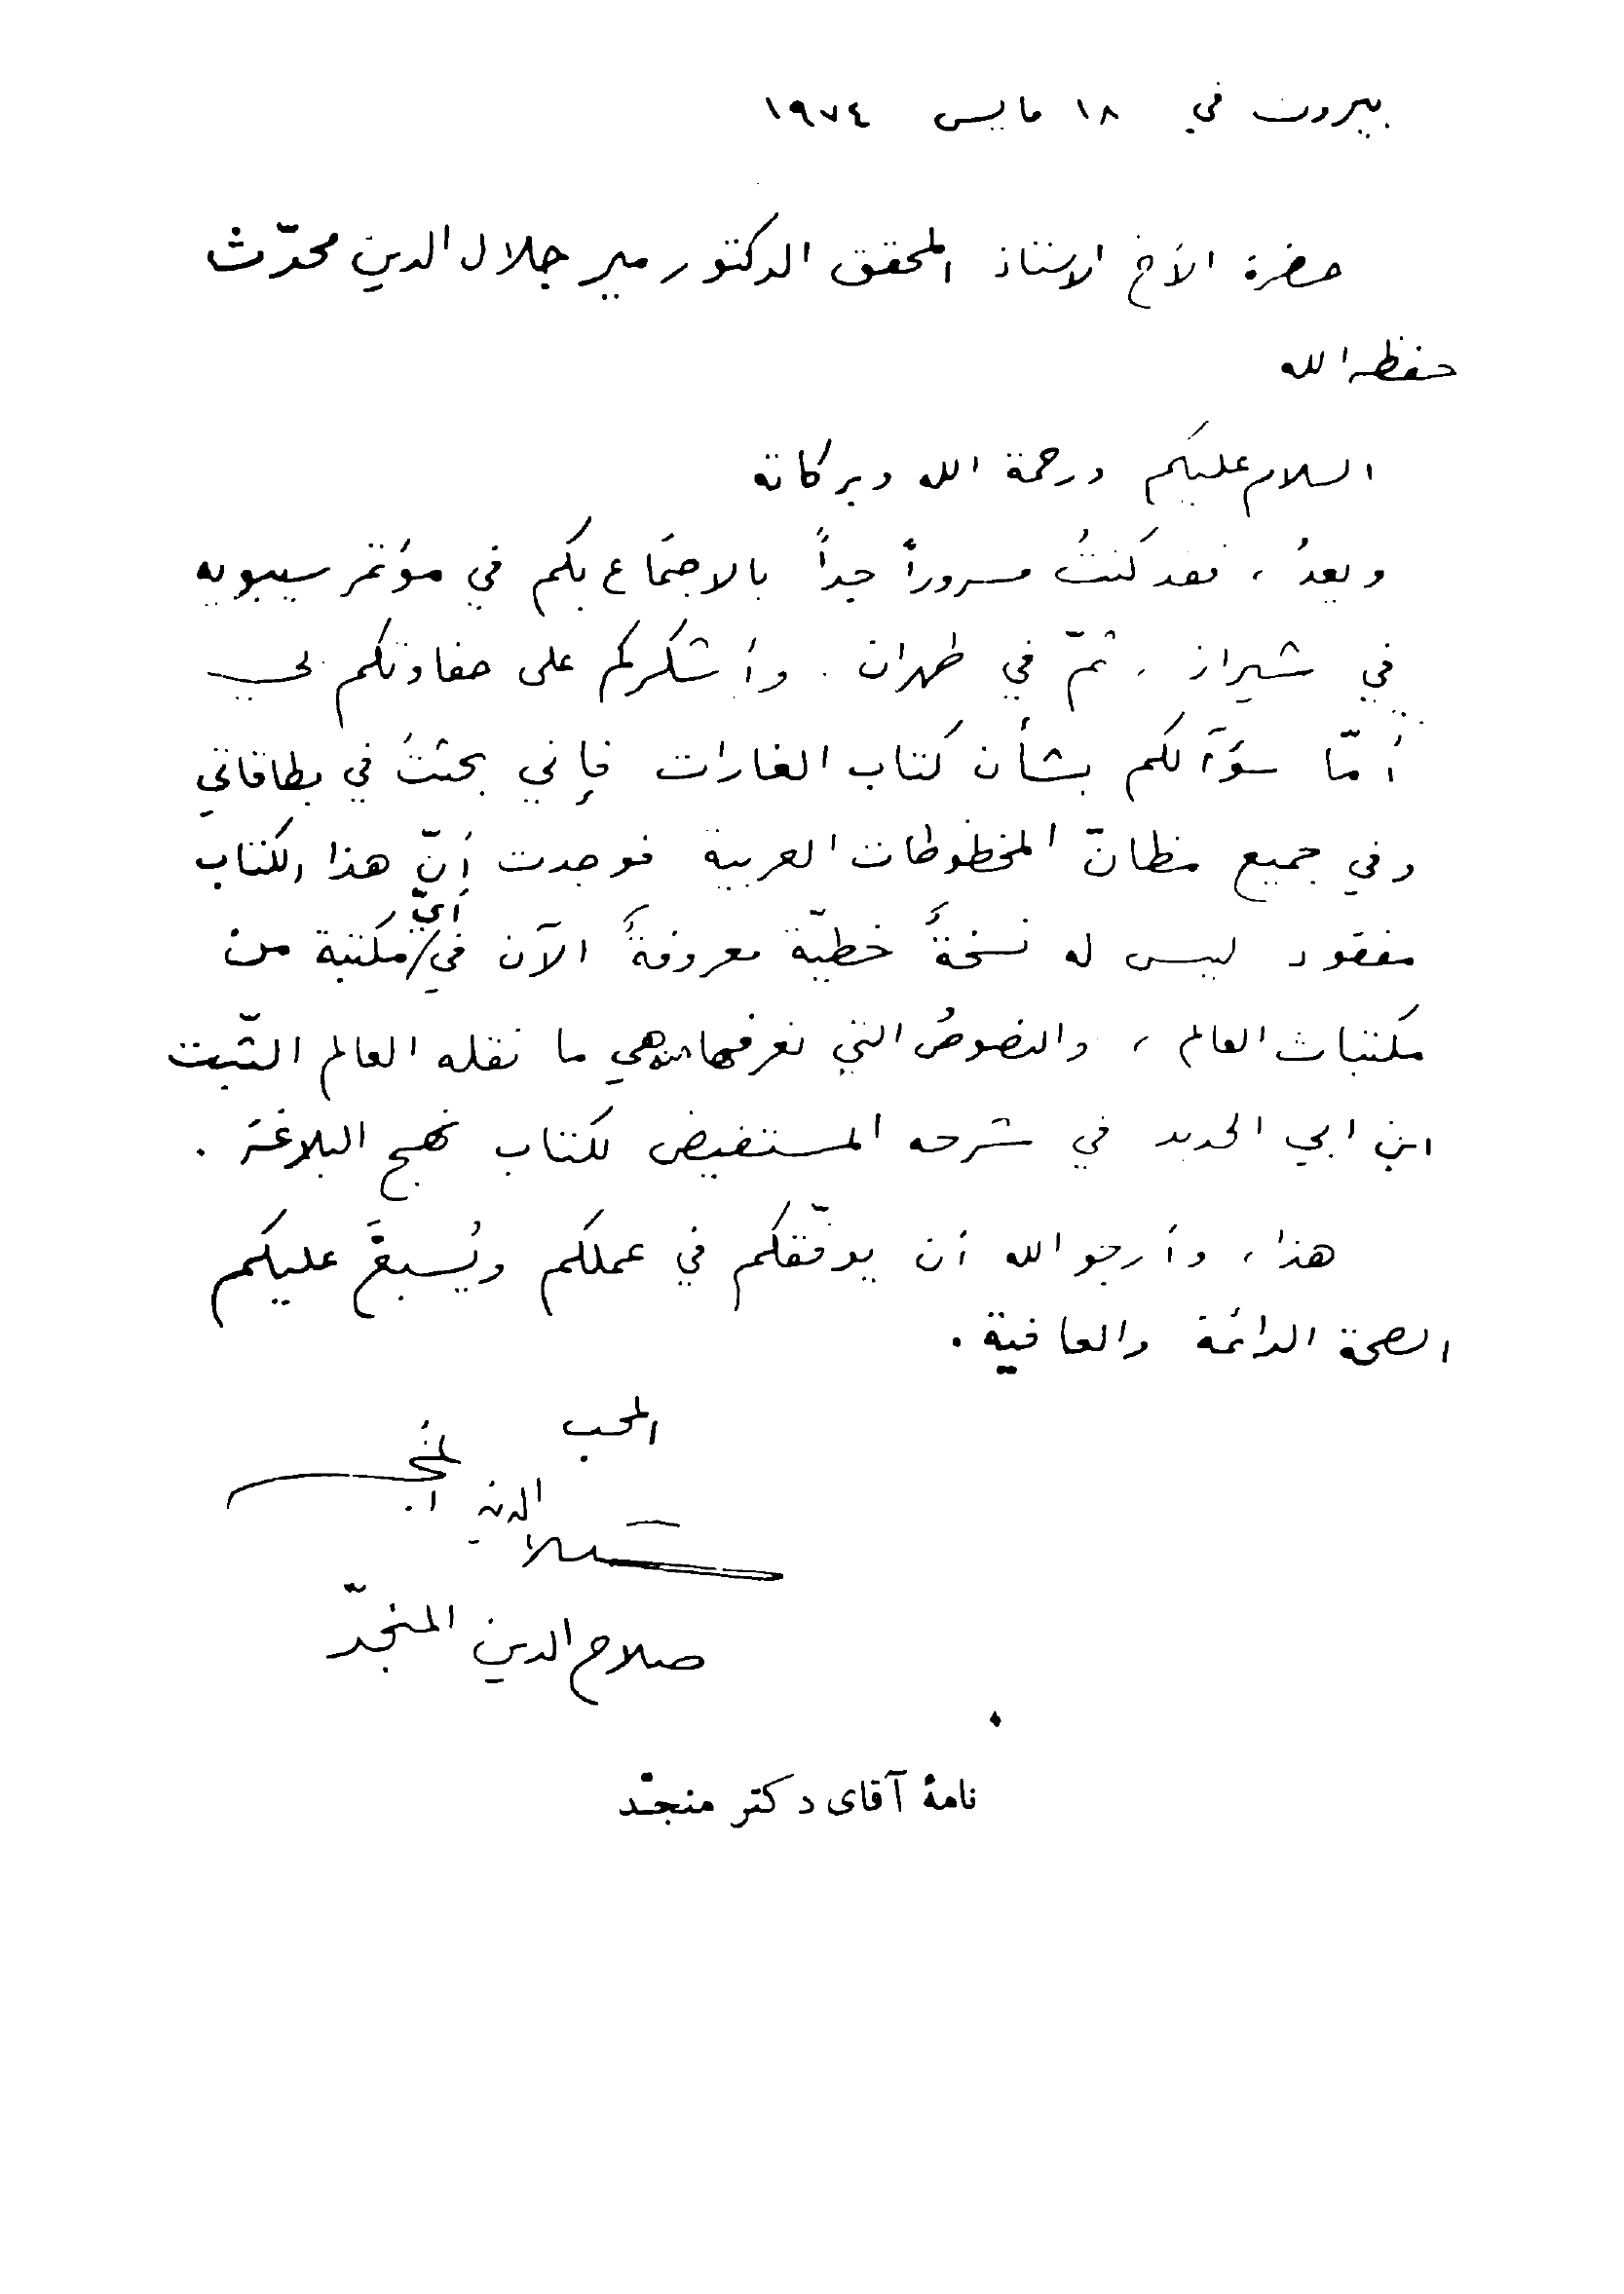 بيروت في ١٨ مايس ١٩٧٤
حضرة الأخ الاستاذ المحقق الدكتور مير جلال الدين محدّث
حفظه الله
السلام عليكم ورحمة الله وبركاته
وبعدُ ، فقد كنتُ مسروراً جداً بالاجتماع بكم في مؤتمر سيبويه
في شيراز ، ثمّ في طهران . وأشكركم على حفاوتكم بي
أمّا سؤالكم بشأن كتاب الغارات فإني بحثتُ في بطاقاتي
وفي جميع مظانّ المخطوطات العربية فوجدت أنّ هذا الكتاب
مفقود ليس له نسخةً خطيّة معروفةً الآن في أيّ مكتبة من
مكتبات العالم ، والنصوصُ التي نعرفها هي ما نقله العالم الثّبت
ابن ابي الحديد في شرحه المستفيض لكتاب نهج البلاغة .
هذا ، وأرجو الله أن يوفّقكم في عملكم ويُسبغَ عليكم
الصحة الدائمة والعافية .
المحب
صلاح الدين المنجد
صلاح الدين المنجّد
نامهٔ آقای دکتر منجّد